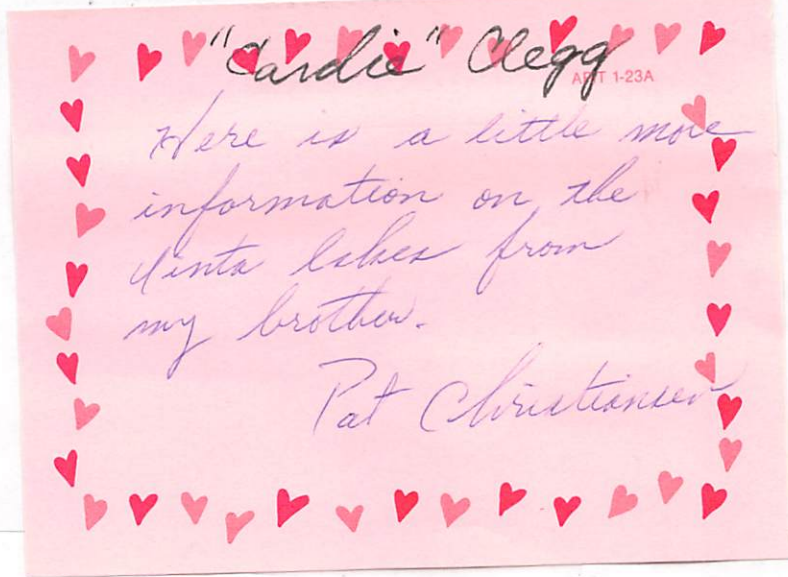 "Cardie" Clegg
APT 1-23A
Here is a little more
information on the
Uinta Lakes from
my brother.
Pat Christiansen